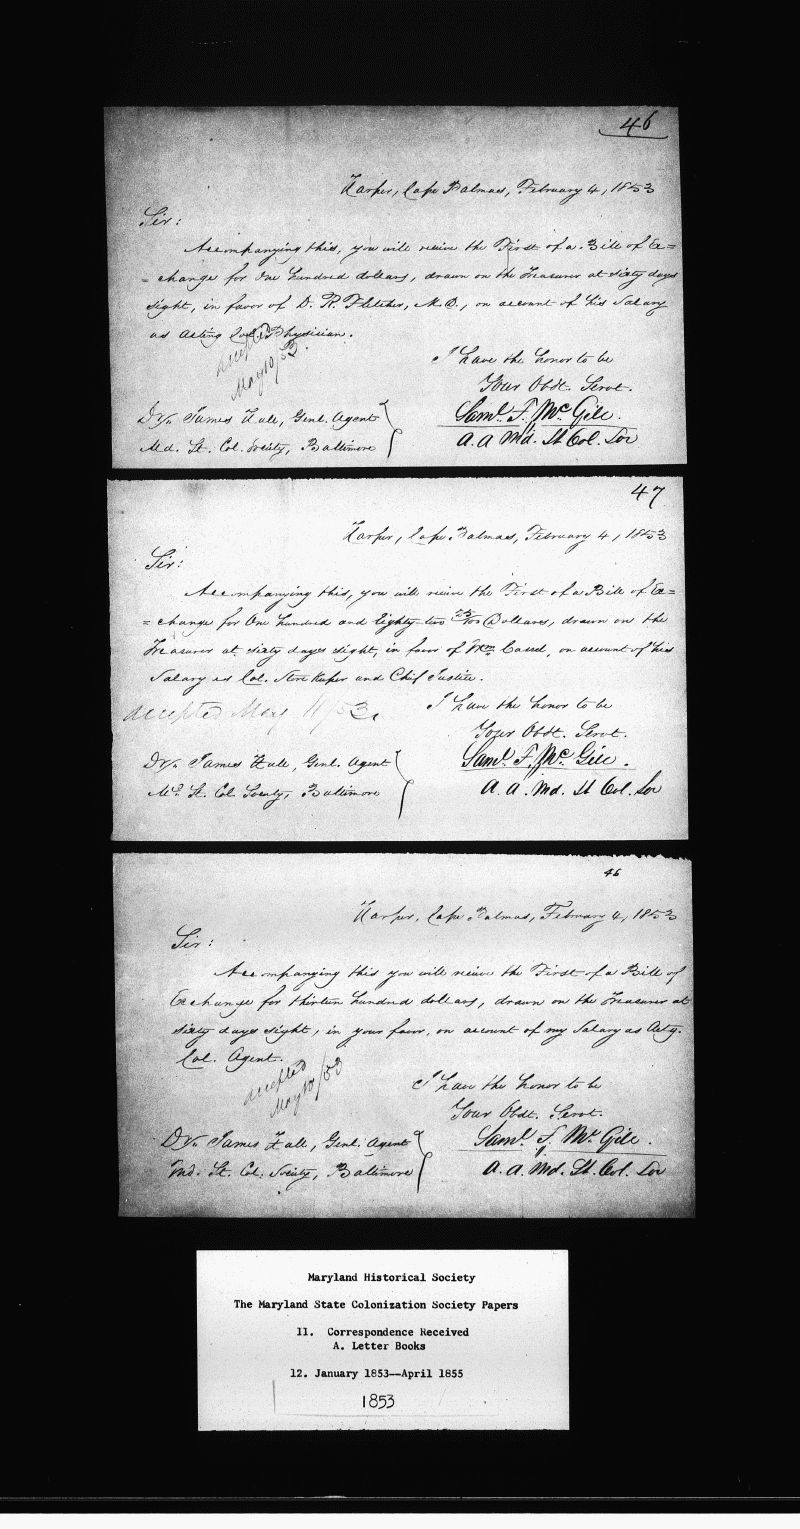 46
Harper, Cape Palmas, February 4, 1853
Sir:
Accompanying this, you will receive the First of a Bill of Ex=
=change for One hundred dollars, drawn on the Treasurer at sixty days
sight, in favor of D. R. Fletcher, M. D., on account of his Salary
as Acting Col. Physician.
accepted
May 10/53.
I have the honor to be
Your Obdt. Servt.
Saml. F. Mc Gill.
A. A Md. St Col. Soc
Dr. James Hall, Genl. Agent
Md. St. Col. Society, Baltimore
47
Harper, Cape Palmas, February 4, 1853
Sir:
Accompanying this, you will receive the First of a Bill of Ex=
=change for One hundred and Eighty two 75/100 Dollars, drawn on the
Treasurer at sixty days sight, in favor of Wm. Cassel, on account of his
Salary as Col. Store Keeper and Chief Justice.
accepted May 11/53.
I have the honor to be
Your Obdt. Servt.
Saml. F. Mc Gill.
A. A. Md. St Col. Soc
Dr. James Hall, Genl. Agent
Md. St. Col. Society, Baltimore
46
Harper, Cape Palmas, February 4, 1853
Sir:
Accompanying this you will receive the First of a Bill of
Exchange for thirteen hundred dollars, drawn on the Treasurer at
sixty days sight, in your favor, on account of my Salary as Actg.
Col. Agent.
accepted
May 10/53
I have the honor to be
Your Obdt. Servt.
Saml. F. Mc Gill.
A. A. Md. St. Col. Soc
Dr. James Hall, Genl. Agent
Md. St. Col. Society, Baltimore
Maryland Historical Society
The Maryland State Colonization Society Papers
11. Correspondence Received
A. Letter Books
12. January 1853--April 1855
1853